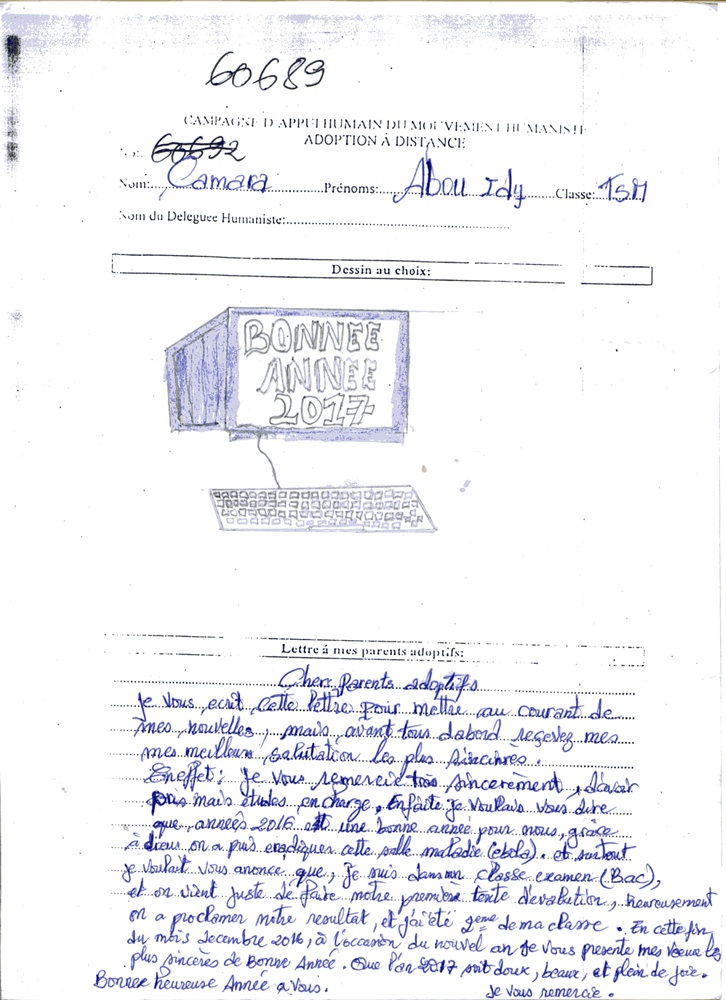 60689
CAMPAGNE D'APPUI HUMAIN DU MOUVEMENT HUMANISTE
ADOPTION À DISTANCE
No: 60692
Nom: Camara Prénoms: Abou Idy Classe: TSM
Nom du Deleguee Humaniste:
Dessin au choix:
BONNEE
ANNEE
2017
Lettre á mes parents adoptifs:
Cher Parents adoptifs
Je vous ecrit cette lettre pour mettre au courant de
mes nouvelles, mais avant tous dabord reçevez mes
mes meilleur salutation les plus sincères.
Eneffet: Je vous remercie très sincerement, d'avoir
pris mais études en charge. Enfaite je voulais vous dire
que, années 2016 est une bonne année pour nous, grâce
à dieu on a puis eradiquer cette salle maladie (ebola). et surtout
je voulait vous anonce que, Je suis dans un classe examen (Bac),
et on vient juste de faire notre première tente d'evalution, heureusement
on a proclamer notre resultat, et j'ai été 2eme de ma classe. En cette fin
du mois decembre 2016, à l'occasion du nouvel an Je vous presente mes vœux les
plus sincères de Bonne Année. Que l'an 2017 soit doux, beaux, et plein de joie.
Bonnee heureuse Année a vous. Je vous remercie.